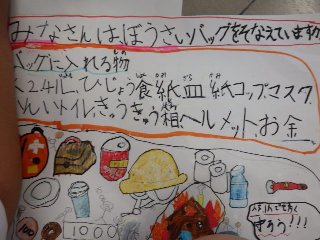 みなさんはぼうさいバッグをそなえています
バッグに入れる物もの
水24L、ひじょう食しょく紙かみ皿ざら紙かみコップ、マスク
かんいトイレ、きゅうきゅう箱、ヘルメット、お金
1000
100
守ろう!!!